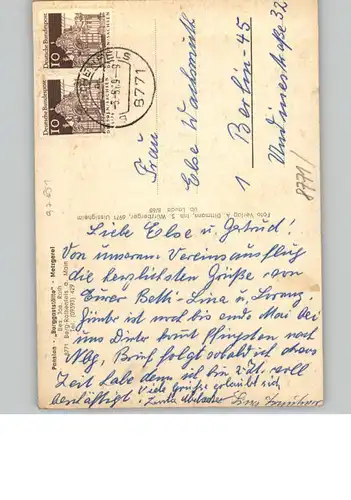 Deutsche Bundespost
10
Deutsche Bundespost
10
8771
Frau
Else Wachsmuth
1 Berlin-45
Undinestraße 32
8771/
Foto Verlag A. Dittmann, Inh. S. Würzberger, 6971 Uissigheim
üb. Lauda 6/68
Pension - „Burggaststätte" - Metzgerei
Bes. Jos. Roth
8771 Berg-Rothenfels a. Main
Tel. (09393) 429
Liebe Else und Gertrud!
Von unserem Vereinsausflug
die herzlichsten Grüße von
Eurer Betti-Lina u. Lorenz.
ist noch bis ends Mai bei
uns Dieter kommt Pfingsten nach
Nbg, Brief folgt sobald ich etwas
Zeit habe denn ich bin z. Zt. voll
beschäftigt. Viele Grüße erlaubt sich